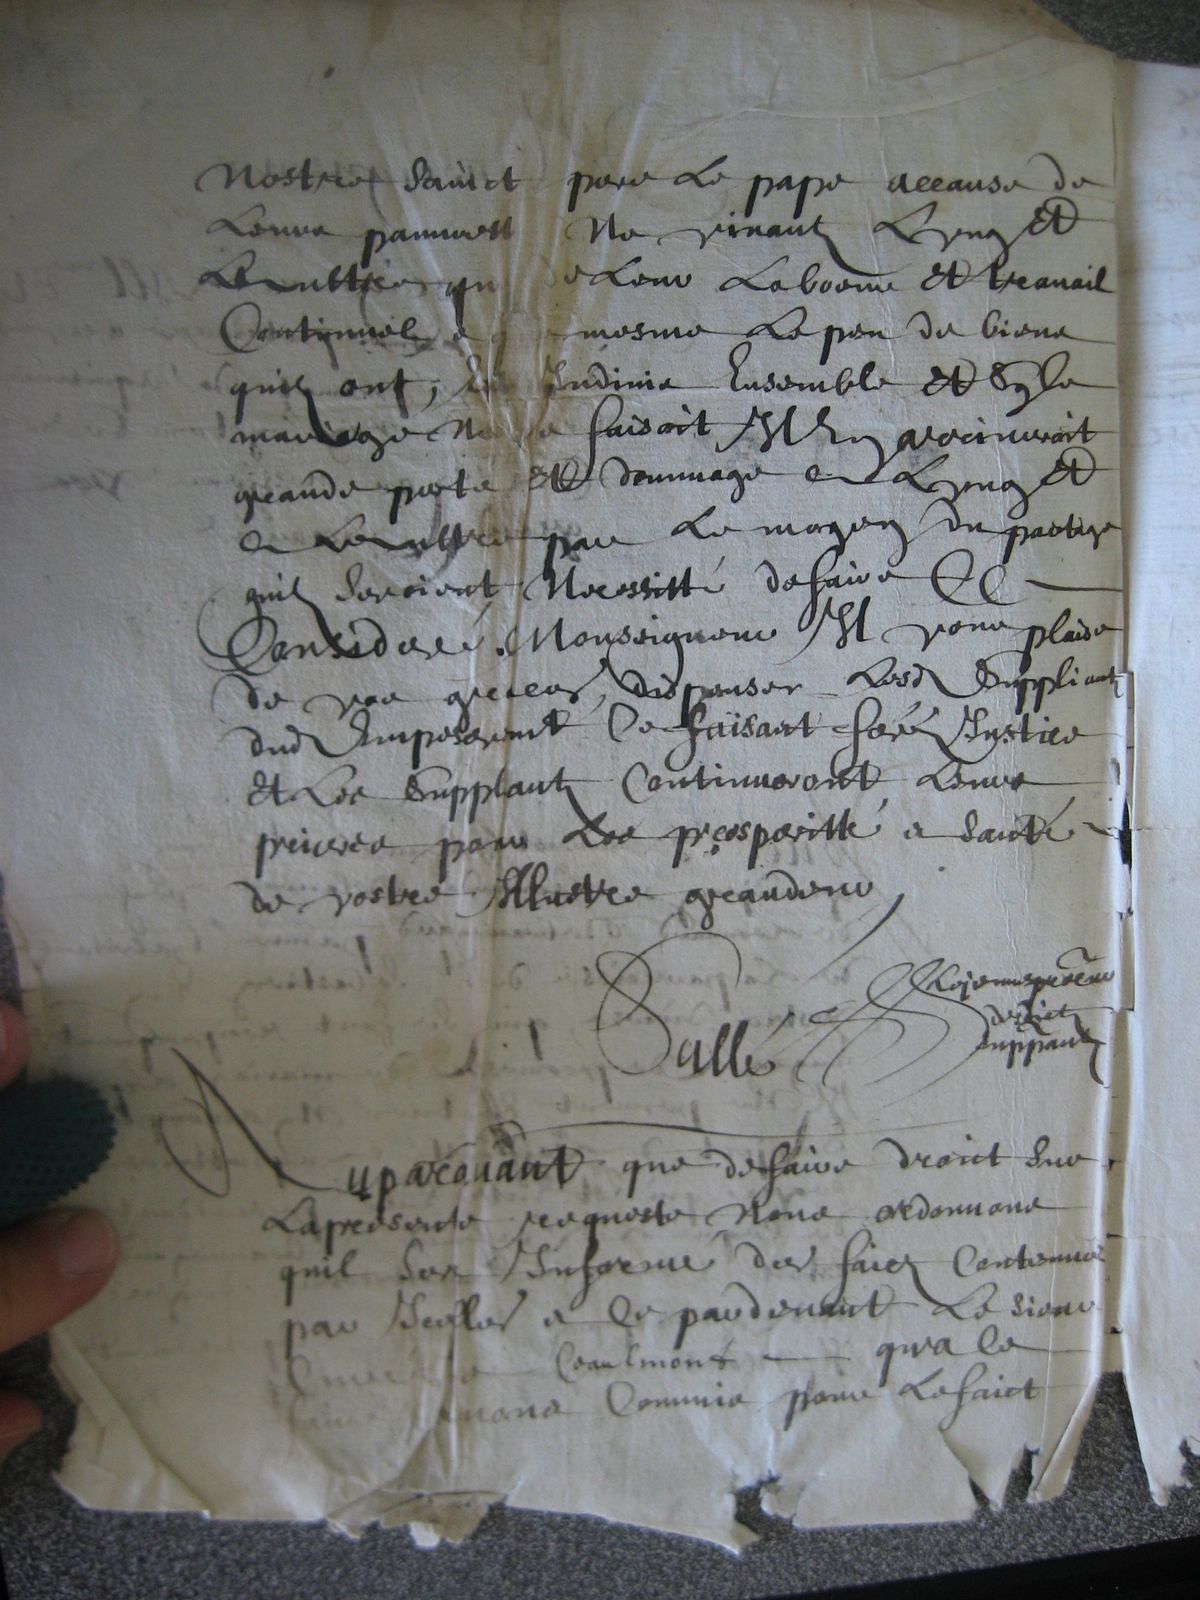 Nostre sainct pere le pape accause de
leurs pauvrett ne vivant l'ung et
lautre qu de leur labourz et travail
Continuel mesme le peu de biens
quilz ont, Indivis Ensemble et Sy le
mariage ne se faisoit Il En adviendroit
grande perte et dommage a Lung et
a Lautre par le moyen du partage
quilz seroient Necessitté de faire Ce
Consideré, Monseigneur Il vous plaise
de voz graces, dispenser lesd Suppliantz
dud Empeschement Ce faisant feréz Justice
et les Supplantz Continueront leurs
prieres pour les prosperitté a santé
de vostre Illustre grandeur
Sallé
desdict
suppantz
Auparavant que de faire droict sur
la presente requeste Nous ordonnons
quil ser Informé des faicz Contenus
par Icelles a ce pardevant le sieur
Chaulmont qu'a ce
Commis pour le faict